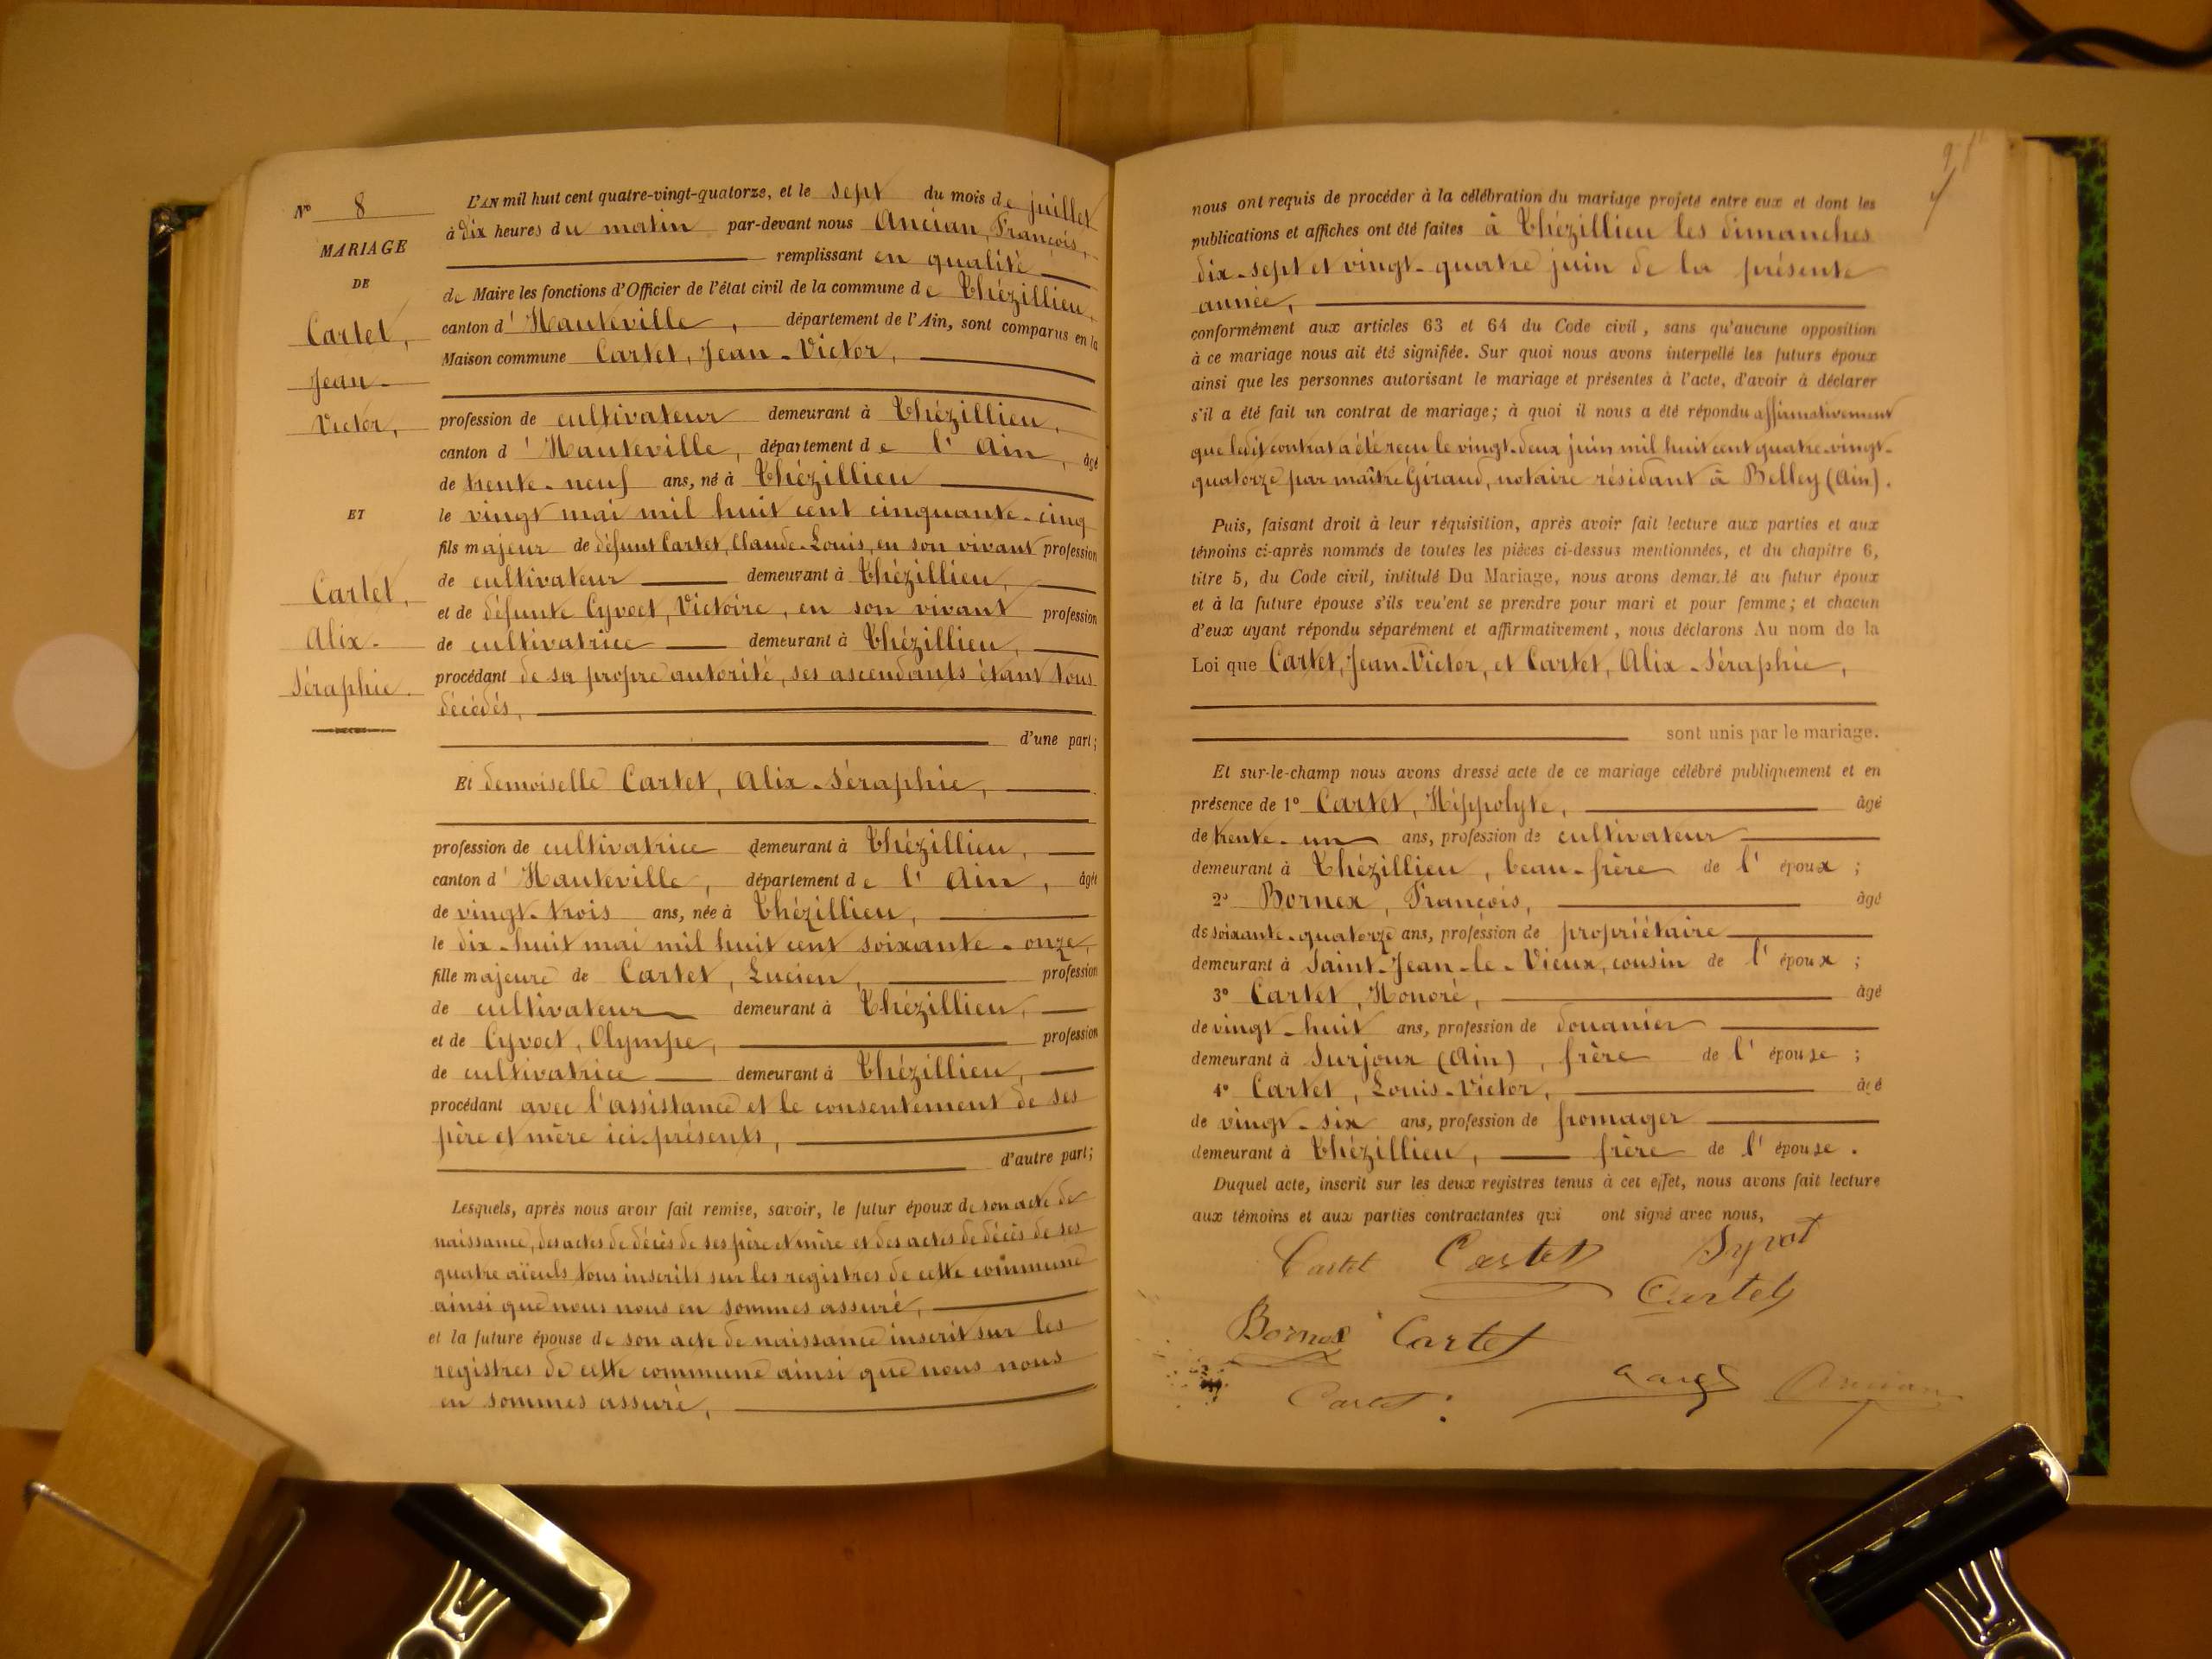 N° 8
MARIAGE
DE
Cartet,
Jean-
Victor,
ET
Cartet,
Alix-
Séraphie.
L'AN mil huit cent quatre-vingt-quatorze, et le sept du mois de juillet
à dix heures du matin par-devant nous Ancian, François,
remplissant en qualité
de Maire les fonctions d'Officier de l'état civil de la commune de Thézillieu,
canton d'Hauteville, département de l'Ain, sont comparus en la
Maison commune Cartet, Jean-Victor,
profession de cultivateur demeurant à Thézillieu,
canton d'Hauteville, département de l'Ain, âgé
de trente-neuf ans, né à Thézillieu
le vingt mai mil huit cent cinquante-cinq
fils majeur de défunt Cartet, Claude-Louis, en son vivant profession
de cultivateur demeurant à Thézillieu,
et de défunte Cyvoct, Victoire, en son vivant profession
de cultivatrice demeurant à Thézillieu,
procédant de sa propre autorité, ses ascendants étant tous
décédés,
d'une part;
Et demoiselle Cartet, Alix-Séraphie,
profession de cultivatrice demeurant à Thézillieu,
canton d'Hauteville, département de l'Ain, âgée
de vingt-trois ans, née à Thézillieu,
le dix-huit mai mil huit cent soixante-onze,
fille majeure de Cartet, Lucien, profession
de cultivateur demeurant à Thézillieu,
et de Cyvoct, Olympe, profession
de cultivatrice demeurant à Thézillieu,
procédant avec l'assistance et le consentement de ses
père et mère ici-présents,
d'autre part;
Lesquels, après nous avoir fait remise, savoir, le futur époux de son acte de
naissance, des actes de décès de ses père et mère et des actes de décès de ses
quatre aïeuls tous inscrits sur les registres de cette commune
ainsi que nous nous en sommes assuré,
et la future épouse de son acte de naissance inscrit sur les
registres de cette commune ainsi que nous nous
en sommes assuré,
nous ont requis de procéder à la célébration du mariage projeté entre eux et dont les
publications et affiches ont été faites à Thézillieu les dimanches
dix-sept et vingt-quatre juin de la présente
année,
conformément aux articles 63 et 64 du Code civil, sans qu'aucune opposition
à ce mariage nous ait été signifiée. Sur quoi nous avons interpellé les futurs époux
ainsi que les personnes autorisant le mariage et présentes à l'acte, d'avoir à déclarer
s'il a été fait un contrat de mariage; à quoi il nous a été répondu affirmativement
que ledit contrat a été reçu le vingt-deux juin mil huit cent quatre-vingt-
quatorze par maître Giraud, notaire résidant à Belley (Ain).
Puis, faisant droit à leur réquisition, après avoir fait lecture aux parties et aux
témoins ci-après nommés de toutes les pièces ci-dessus mentionnées, et du chapitre 6,
titre 5, du Code civil, intitulé Du Mariage, nous avons demandé au futur époux
et à la future épouse s'ils veulent se prendre pour mari et pour femme; et chacun
d'eux ayant répondu séparément et affirmativement, nous déclarons Au nom de la
Loi que Cartet, Jean-Victor, et Cartet, Alix-Séraphie,
sont unis par le mariage.
Et sur-le-champ nous avons dressé acte de ce mariage célébré publiquement et en
présence de 1° Cartet, Hippolyte, âgé
de trente-un ans, profession de cultivateur
demeurant à Thézillieu, beau-frère de l'époux;
2° Bornex, François, âgé
de soixante-quatorze ans, profession de propriétaire
demeurant à Saint-Jean-le-Vieux, cousin de l'époux;
3° Cartet, Honoré, âgé
de vingt-huit ans, profession de douanier
demeurant à Surjoux (Ain), frère de l'épouse;
4° Cartet, Louis-Victor, âgé
de vingt-six ans, profession de fromager
demeurant à Thézillieu, frère de l'épouse.
Duquel acte, inscrit sur les deux registres tenus à cet effet, nous avons fait lecture
aux témoins et aux parties contractantes qui ont signé avec nous,
Cartet Cartet
Cartet
Bornex Cartet
Cartet Ancian